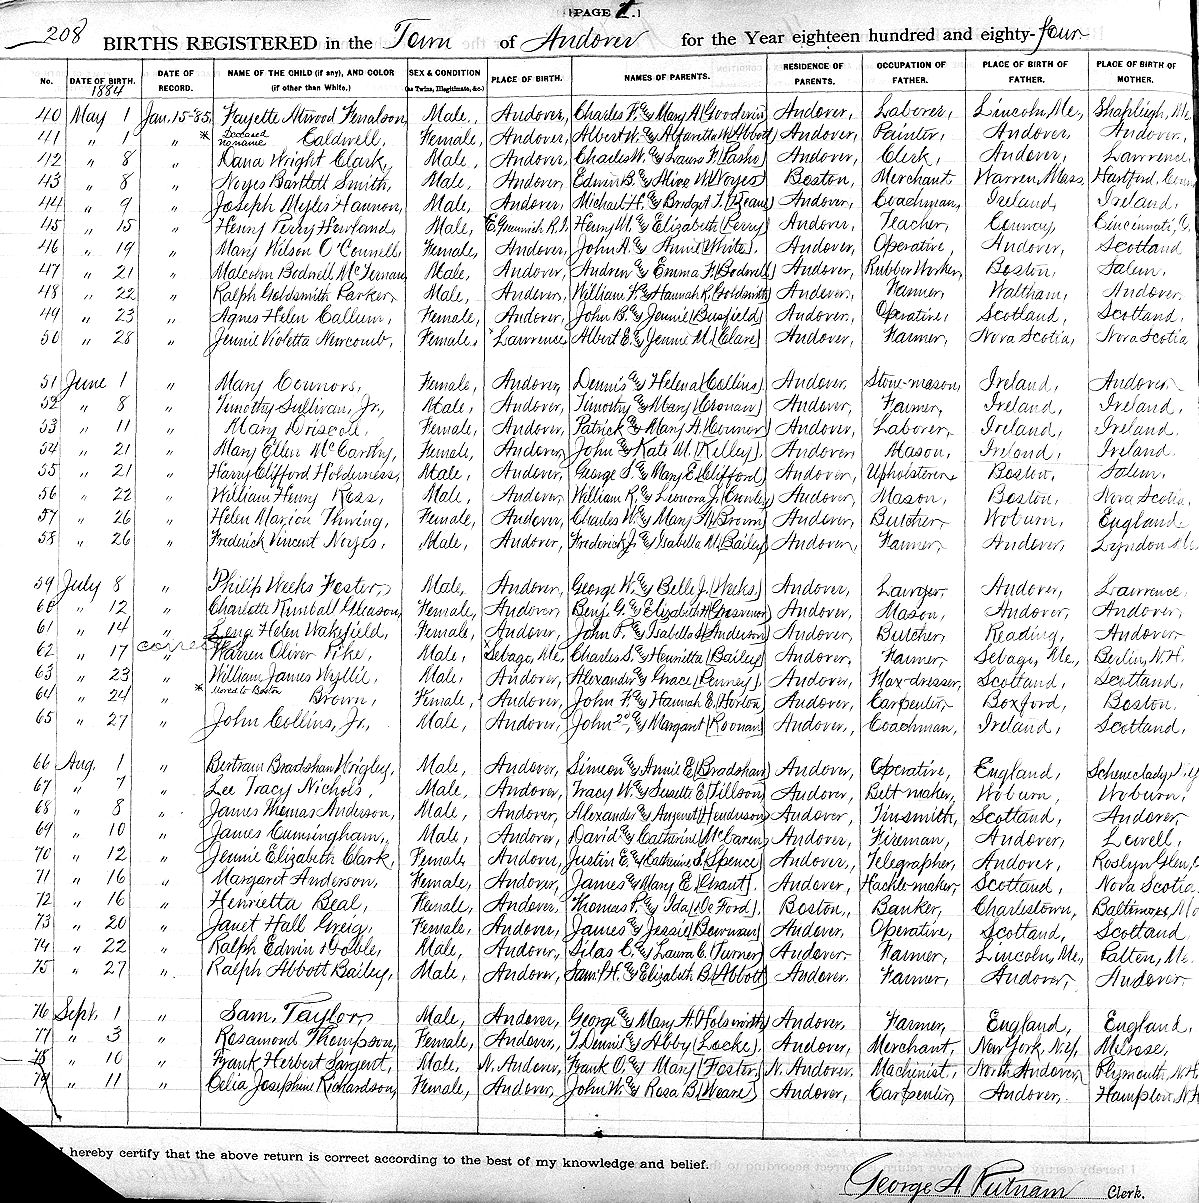 PAGE 4.
208 BIRTHS REGISTERED in the Town of Andover for the Year eighteen hundred and eighty-four
No. DATE OF BIRTH. 1884 DATE OF RECORD. NAME OF THE CHILD (if any), AND COLOR (if other than White.) SEX & CONDITION (as Twins, Illegitimate, &c.) PLACE OF BIRTH. NAMES OF PARENTS. RESIDENCE OF PARENTS. OCCUPATION OF FATHER. PLACE OF BIRTH OF FATHER. PLACE OF BIRTH OF MOTHER.
40 May 1 Jan. 15-85, Fayette Atwood Fenalson, Male, Andover, Charles F. & Mary A (Goodwin) Andover, Laborer, Lincoln, Me, Shapleigh, Me
41 " 1 " * Deceased no name Caldwell, Female, Andover, Albert W. & Alfaretta W. (Abbott) Andover, Painter, Andover, Andover,
42 " 8 " Dana Wright Clark, Male, Andover, Charles W. & Laura F. Andover, Clerk, Andover, Lawrence,
43 " 8 " Noyes Bartlett Smith, Male, Andover, Edwin B. & Alice W. (Noyes) Boston, Merchant Warren, Mass. Hartford, Conn
44 " 9 " Joseph Myles Hannon, Male, Andover, Michael H. & Bridget T. Andover, Coachman, Ireland, Ireland,
45 " 15 " Henry Perry Newland, Male, E. Greenwich R.I. Henry M. & Elizabeth (Perry) Andover, Teacher, Conway, Cincinnati, O.
46 " 19 " Mary Wilson O'Connell, Female, Andover, John A. & Annie (White) Andover, Operative, Andover, Scotland
47 " 21 " Malcolm Bodwell McTernan, Male, Andover, Andrew & Emma F. (Bodwell) Andover, Rubber Worker, Boston, Salem,
48 " 22 " Ralph Goldsmith Parker, Male, Andover, William F. & Hannah R. (Goldsmith) Andover, Farmer, Waltham, Andover,
49 " 23 " Agnes Helen Callum, Female, Andover, John B. & Jennie (Busfield) Andover, Operative, Scotland, Scotland,
50 " 28 " Jennie Violetta Newcomb, Female, Lawrence, Albert E. & Jennie M. (Clare) Andover, Farmer, Nova Scotia, Nova Scotia
51 June 1 " Mary Connors, Female, Andover, Dennis & Helena (Collins) Andover, Stone-mason, Ireland, Andover,
52 " 8 " Timothy Sullivan, Jr, Male, Andover, Timothy & Mary (Cronan) Andover, Farmer, Ireland, Ireland,
53 " 11 " Mary Driscoll, Female, Andover, Patrick & Mary A. (Connor) Andover, Laborer, Ireland, Ireland.
54 " 21 " Mary Ellen McCarthy, Female, Andover, John & Kate M. (Kelley) Andover, Mason, Ireland, Ireland
55 " 21 " Harry Clifford Holderness, Male, Andover, George S. & Mary E. (Clifford) Andover, Upholsterer, Boston, Salem,
56 " 22 " William Henry Ross, Male, Andover, William R. & Leonora J. Andover, Mason, Boston, Nova Scotia,
57 " 26 " Helen Marion Thwing, Female, Andover, Charles W. & Mary A. (Brown) Andover, Butcher, Woburn, England
58 " 26 " Frederick Vincent Noyes, Male, Andover, Frederick J. & Isabella M. (Bailey) Andover, Farmer, Andover, Lyndon
59 July 8 " Philip Weeks Foster, Male, Andover, George W. & Belle J. (Weeks) Andover, Lawyer, Andover, Lawrence,
60 " 12 " Charlotte Kimball Gleason, Female, Andover, Benj. G. & Elizabeth H. (Grosvenor) Andover, Mason, Andover, Andover,
61 " 14 " Lena Helen Wakefield, Female, Andover, John P. & Isabella S. (Anderson) Andover, Butcher, Reading, Andover
62 " 17 " correct Warren Oliver Pike, Male, Sebago, Me, Charles S. & Henrietta (Bailey) Andover, Farmer, Sebago, Me, Berlin, N.H.
63 " 23 " William James Wyllie, Male, Andover, Alexander & Grace (Penney) Andover, Flax-dresser, Scotland, Scotland,
64 " 24 " * Moved to Boston Brown, Female, Andover, John F. & Hannah E. (Horton) Andover, Carpenter, Boxford, Boston,
65 " 27 " John Collins, Jr. Male, Andover, John 2d, & Margaret (Roonan) Andover, Coachman, Ireland, Scotland,
66 Aug. 1 " Bertram Bradshaw Wrigley, Male, Andover, Simeon & Annie E. (Bradshaw) Andover, Operative, England, Schenectady N.Y.
67 " 7 " Lee Tracy Nichols, Male, Andover, Tracy W. & Susette E. (Tillson) Andover, Belt maker, Woburn, Woburn,
68 " 8 " James Thomas Anderson, Male, Andover, Alexander & (Henderson) Andover, Tinsmith, Scotland, Andover
69 " 10 " James Cunningham, Male, Andover, David & Catherine (McCavern) Andover, Fireman, Andover, Lowell,
70 " 12 " Jennie Elizabeth Clark, Female Andover, Justin E. & Catherine S. (Spence) Andover, Telegrapher, Andover, Roslyn Glen,
71 " 16 " Margaret Anderson, Female, Andover, James & Mary E. (Grant). Andover, Hackle-maker, Scotland, Nova Scotia
72 " 16 " Henrietta Beal, Female, Andover, Thomas P. & Ida (De Ford), Boston, Banker, Charlestown, Baltimore, Md
73 " 20 " Janet Hall Greig, Female, Andover, James & Jessie (Bowman) Andover, Operative, Scotland, Scotland
74 " 22 " Ralph Edwin Goble, Male, Andover, Silas E. & Laura E. (Turner) Andover, Farmer, Lincoln, Me, Patten, Me.
75 " 27 " Ralph Abbott Bailey, Male, Andover, Saml. H. & Elizabeth B. (Abbott) Andover, Farmer, Andover, Andover
76 Sept. 1 " Sam. Taylor, Male, Andover, George & Mary A. (Holsworth) Andover, Farmer, England, England,
77 " 3 " Rosamond Thompson, Female, Andover, T. Dennie & Abby (Locke) Andover, Merchant, New York, N.Y. Melrose,
78 " 10 " Frank Herbert Sargent, Male, N. Andover, Frank O. & Mary (Foster) N. Andover, Machinist, North Andover, Plymouth, N.H.
79 " 11 " Celia Josephine Richardson, Female, Andover, John W. & Rosa B. (Weare) Andover, Carpenter, Andover, Hampton, N.H.
I hereby certify that the above return is correct according to the best of my knowledge and belief.
George A. Putnam Clerk.